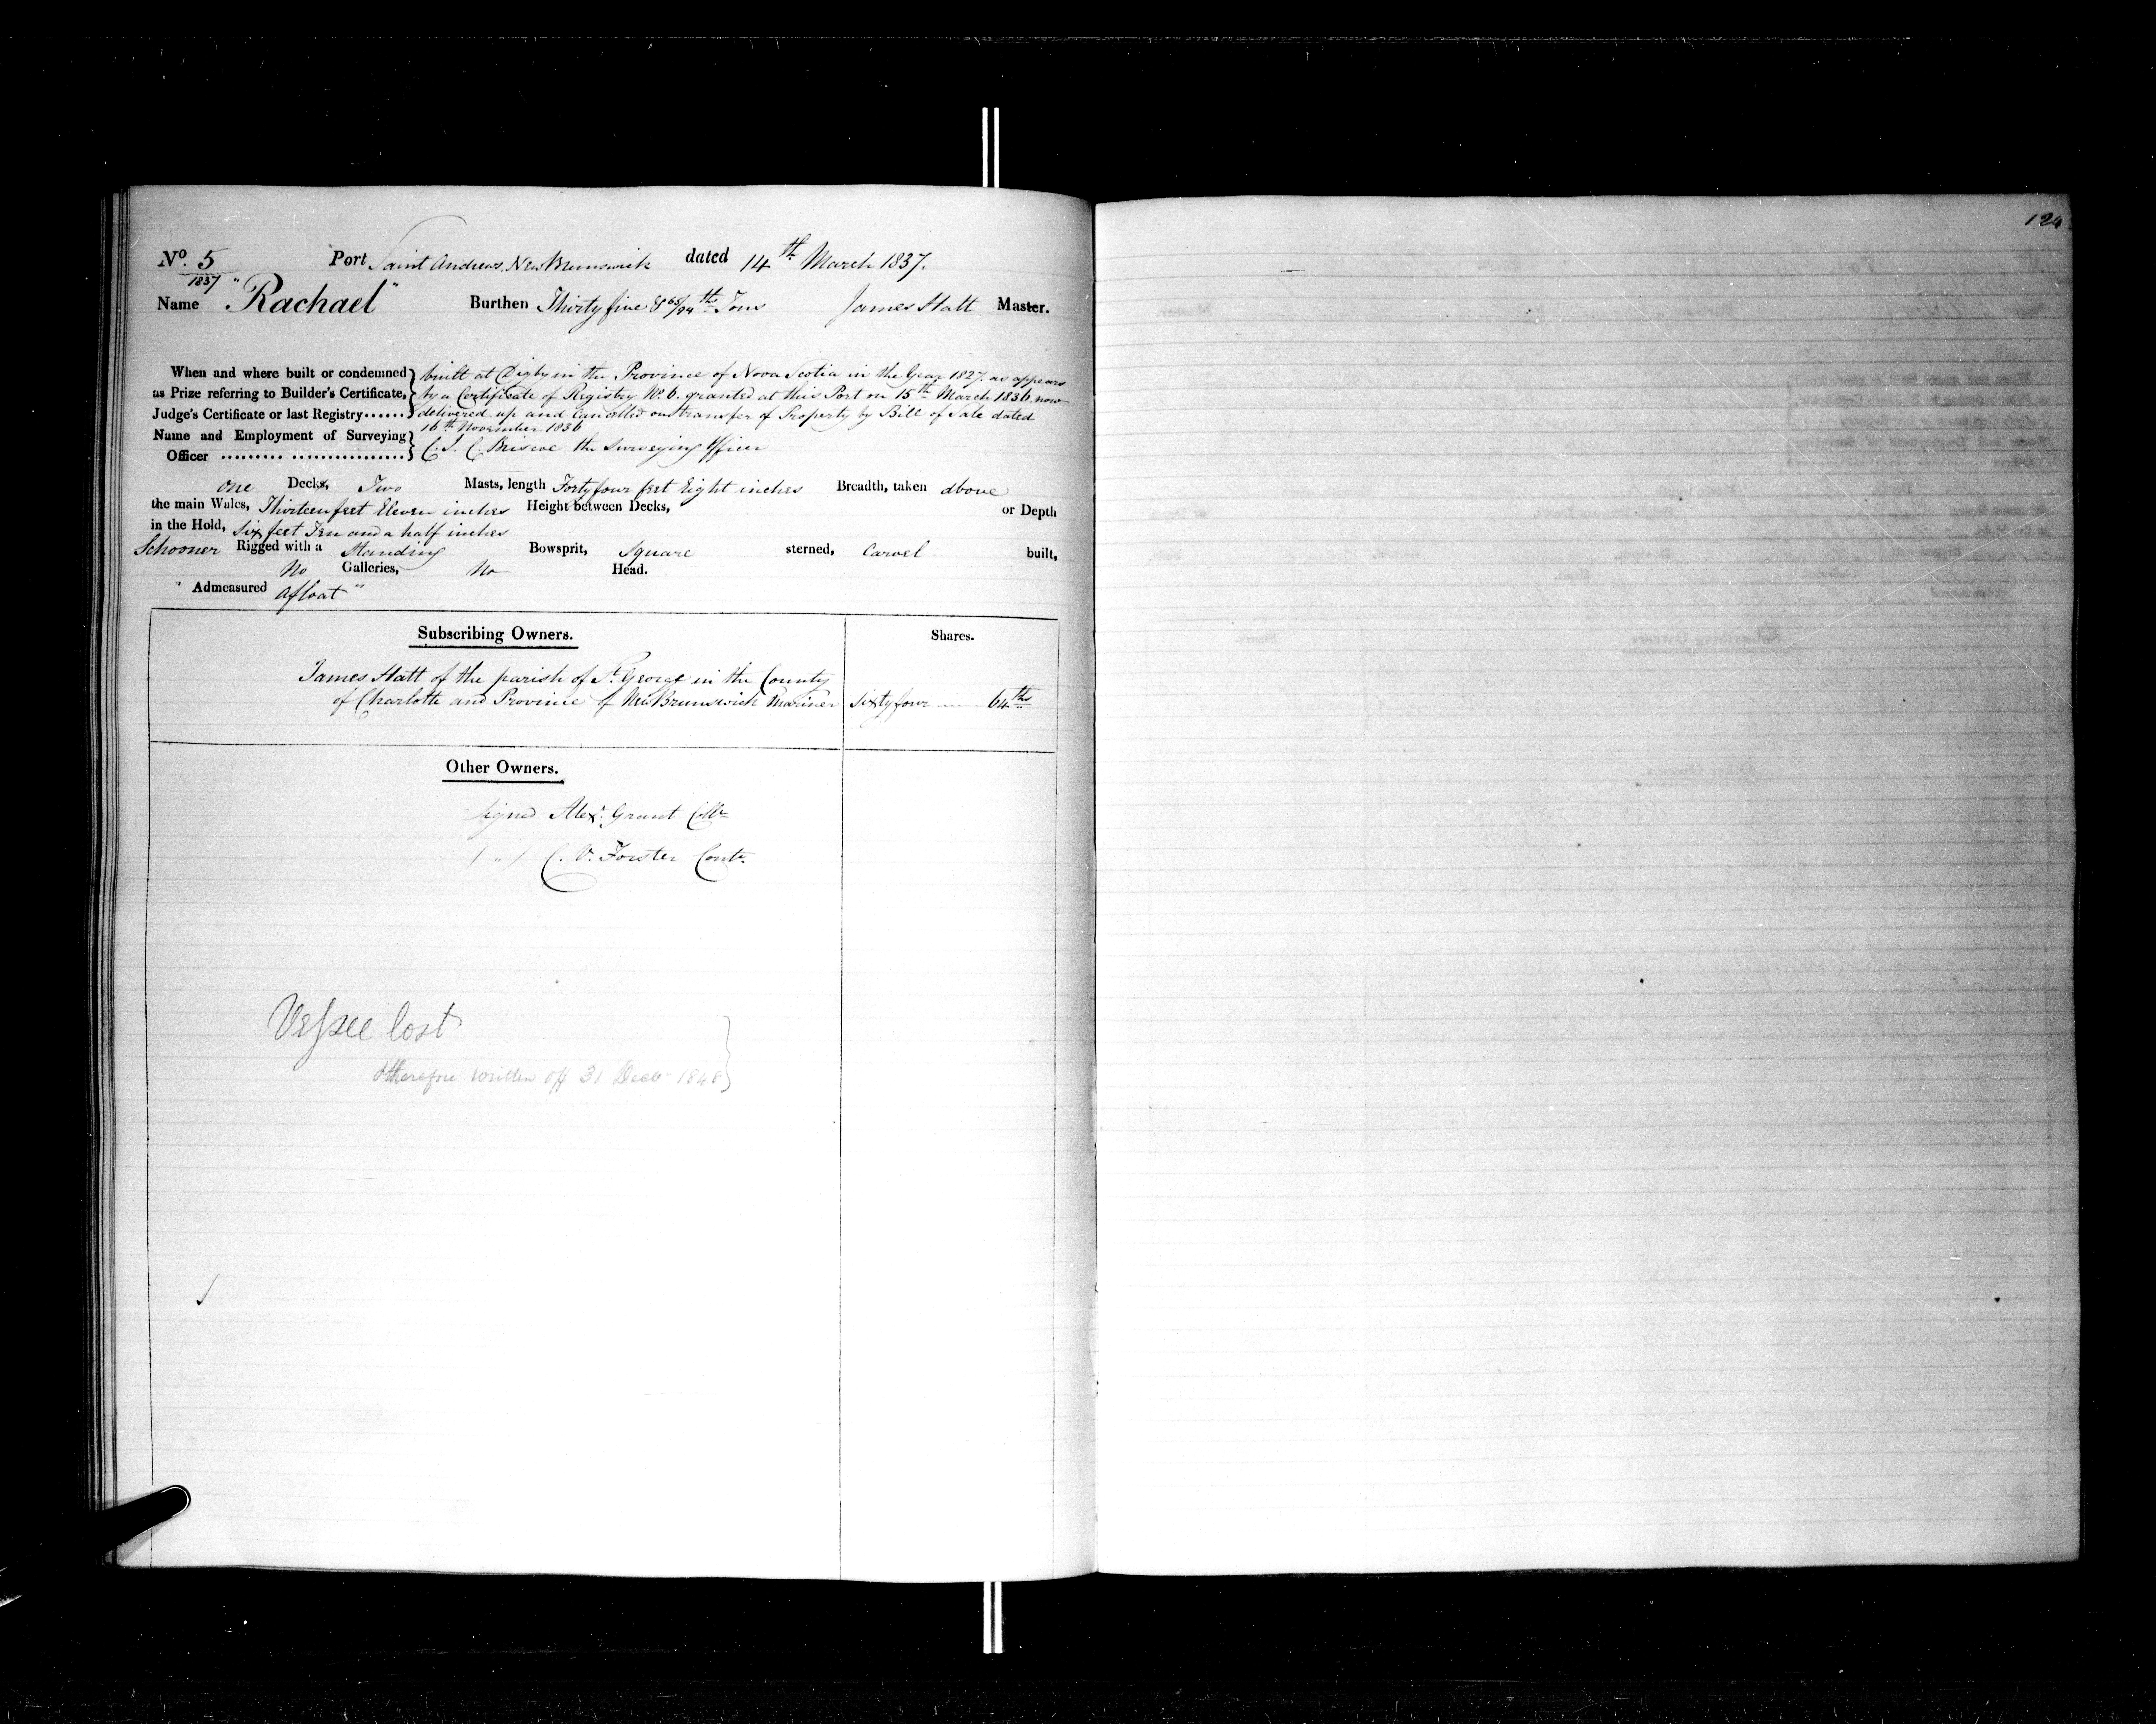 124
No. 5 Port Saint Andrews, New Brunswick dated 14th March 1837.
1837
Name "Rachael" Burthen Thirty five & 65/94th Tons James Hatt Master.
When and where built or condemned as Prize referring to Builder's Certificate, Judge's Certificate or last Registry......
built at Digby in the Province of Nova Scotia in the Year 1827. as appears
by a Certificate of Registry No. 6. granted at this Port on 15th March 1836 now
delivered up and Cancelled on transfer of Property by Bill of Sale dated
16th November 1836
Name and Employment of Surveying Officer ......... ................
C. J. C. Briscoe the Surveying Officer
one Decks, Two Masts, length Forty four feet Eight inches Breadth, taken above
the main Wales, Thirteen feet Eleven inches Height between Decks, or Depth
in the Hold, six feet Ten and a half inches
Schooner Rigged with a Standing Bowsprit, Square sterned, Carvel built,
No Galleries, No Head.
" Admeasured afloat "
Subscribing Owners. Shares.
James Hatt of the parish of St. George in the County
of Charlotte and Province of New Brunswick Mariner Sixty four 64ths
Other Owners.
Signed Alexr. Grant Collr
( " ) C. V. Forster Contr.
Vessel lost
therefore written off 31 Decr 1848